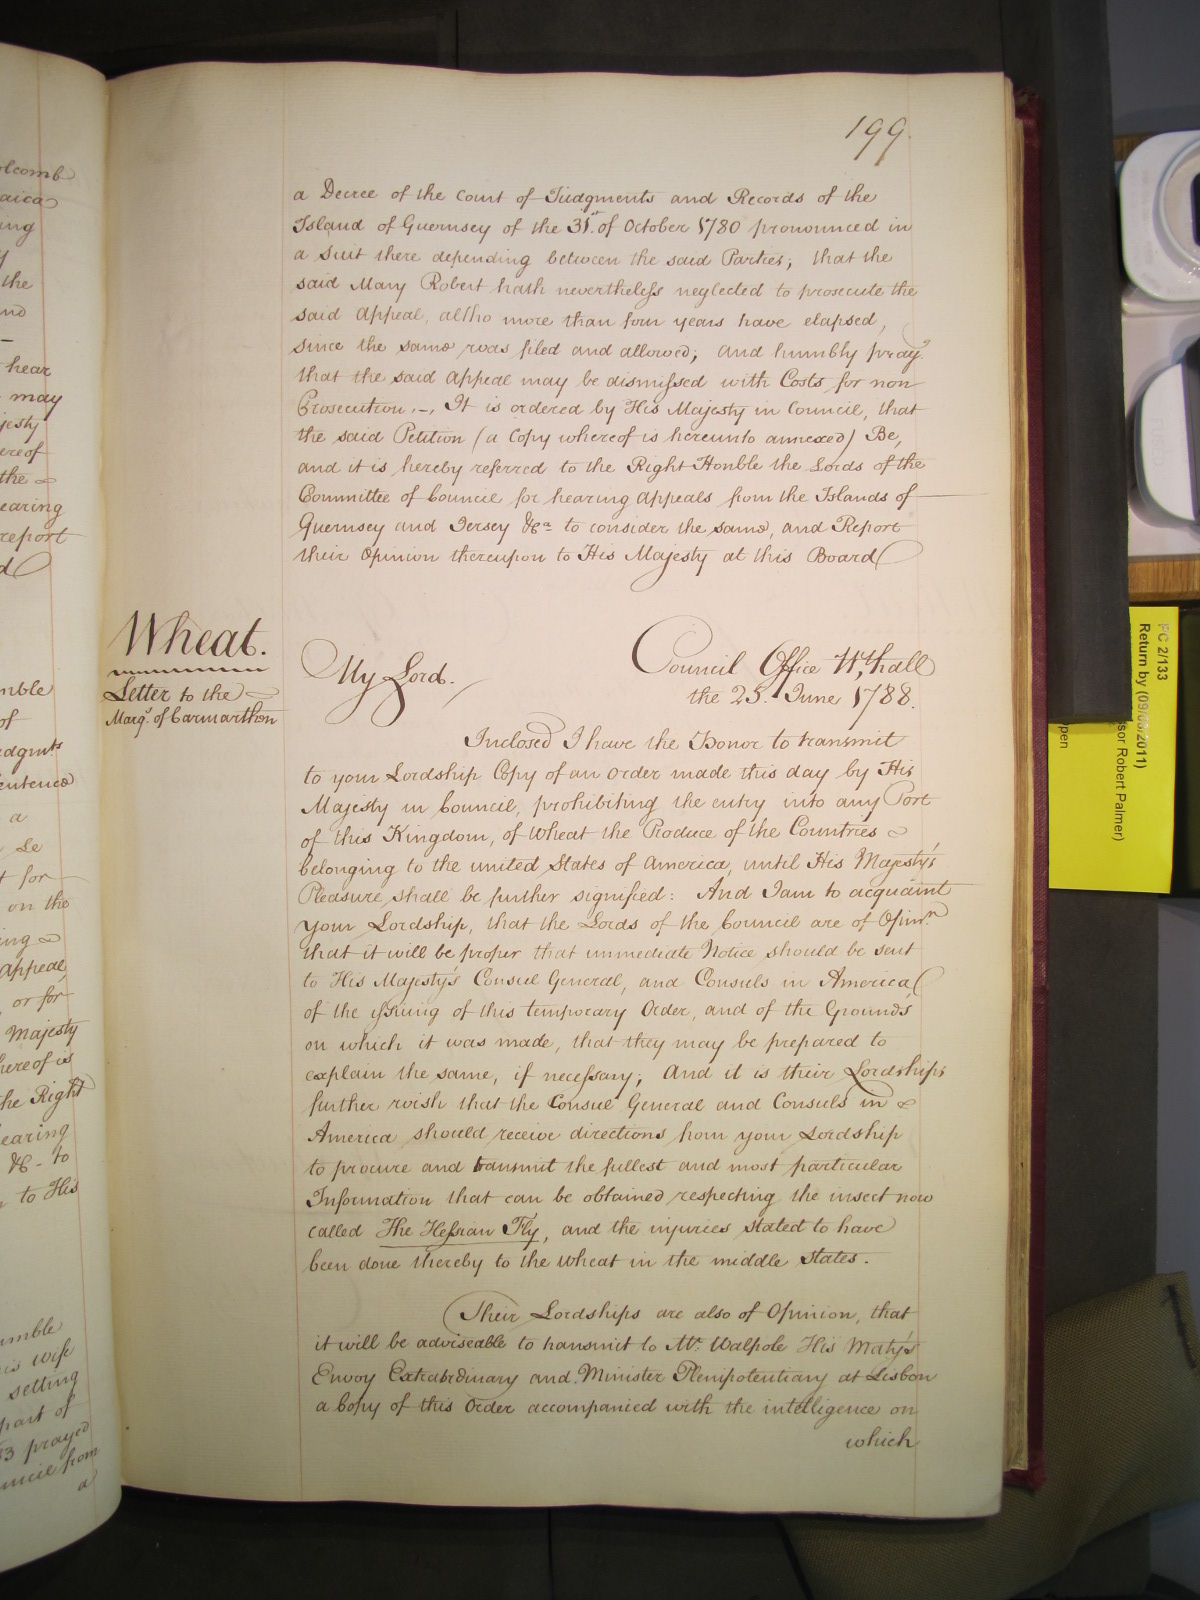 199.
a Decree of the Court of Judgments and Records of the
Island of Guernsey of the 31st. of October 1780 pronounced in
a Suit there depending between the said Parties; that the
said Mary Robert hath nevertheless neglected to prosecute the
said Appeal, altho more than four years have elapsed,
since the same was filed and allowed; and humbly pray
that the said Appeal may be dismissed with Costs for non
Prosecution.–, It is ordered by His Majesty in Council, that
the said Petition (a Copy whereof is hereunto annexed) Be,
and it is hereby referred to the Right Honble the Lords of the
Committee of Council for hearing Appeals from the Islands of
Guernsey and Jersey &ca to consider the same, and Report
their Opinion thereupon to His Majesty at this Board
Wheat.
Letter to the
Marqs. of Carmarthen
Council Office Wthall
the 25. June 1788.
My Lord.
Inclosed I have the Honor to transmit
to your Lordship Copy of an Order made this day by His
Majesty in Council, prohibiting the entry into any Port
of this Kingdom, of Wheat the Produce of the Countries
belonging to the united States of America, until His Majesty's
Pleasure shall be further signified: And I am to acquaint
your Lordship, that the Lords of the Council are of Opinn.
that it will be proper that immediate Notice should be sent
to His Majesty's Consul General, and Consuls in America
of the issuing of this temporary Order, and of the Grounds
on which it was made, that they may be prepared to
explain the same, if necessary; And it is their Lordships
further wish that the Consul General and Consuls in
America should receive directions from your Lordship
to procure and transmit the fullest and most particular
Information that can be obtained respecting the insect now
called The Hessian Fly, and the injuries stated to have
been done thereby to the Wheat in the middle States.
Their Lordships are also of Opinion, that
it will be adviseable to transmit to Mr. Walpole His Maty's
Envoy Extraordinary and Minister Plenipotentiary at Lisbon
a Copy of this Order accompanied with the intelligence on
which
olcomb
aica
ing
the
hear
may
jesty
ereof
the
earing
report
d
mble
of
udgmts
entence
a
Se
for
on the
ing
Appeal,
or for
Majesty
hereof is
the Right
earing
&c - to
to His
umble
is wife
setting
part of
3 prayed
uncil from
a
PC 2/133
Return by (09/2011)
sor Robert Palmer)
open